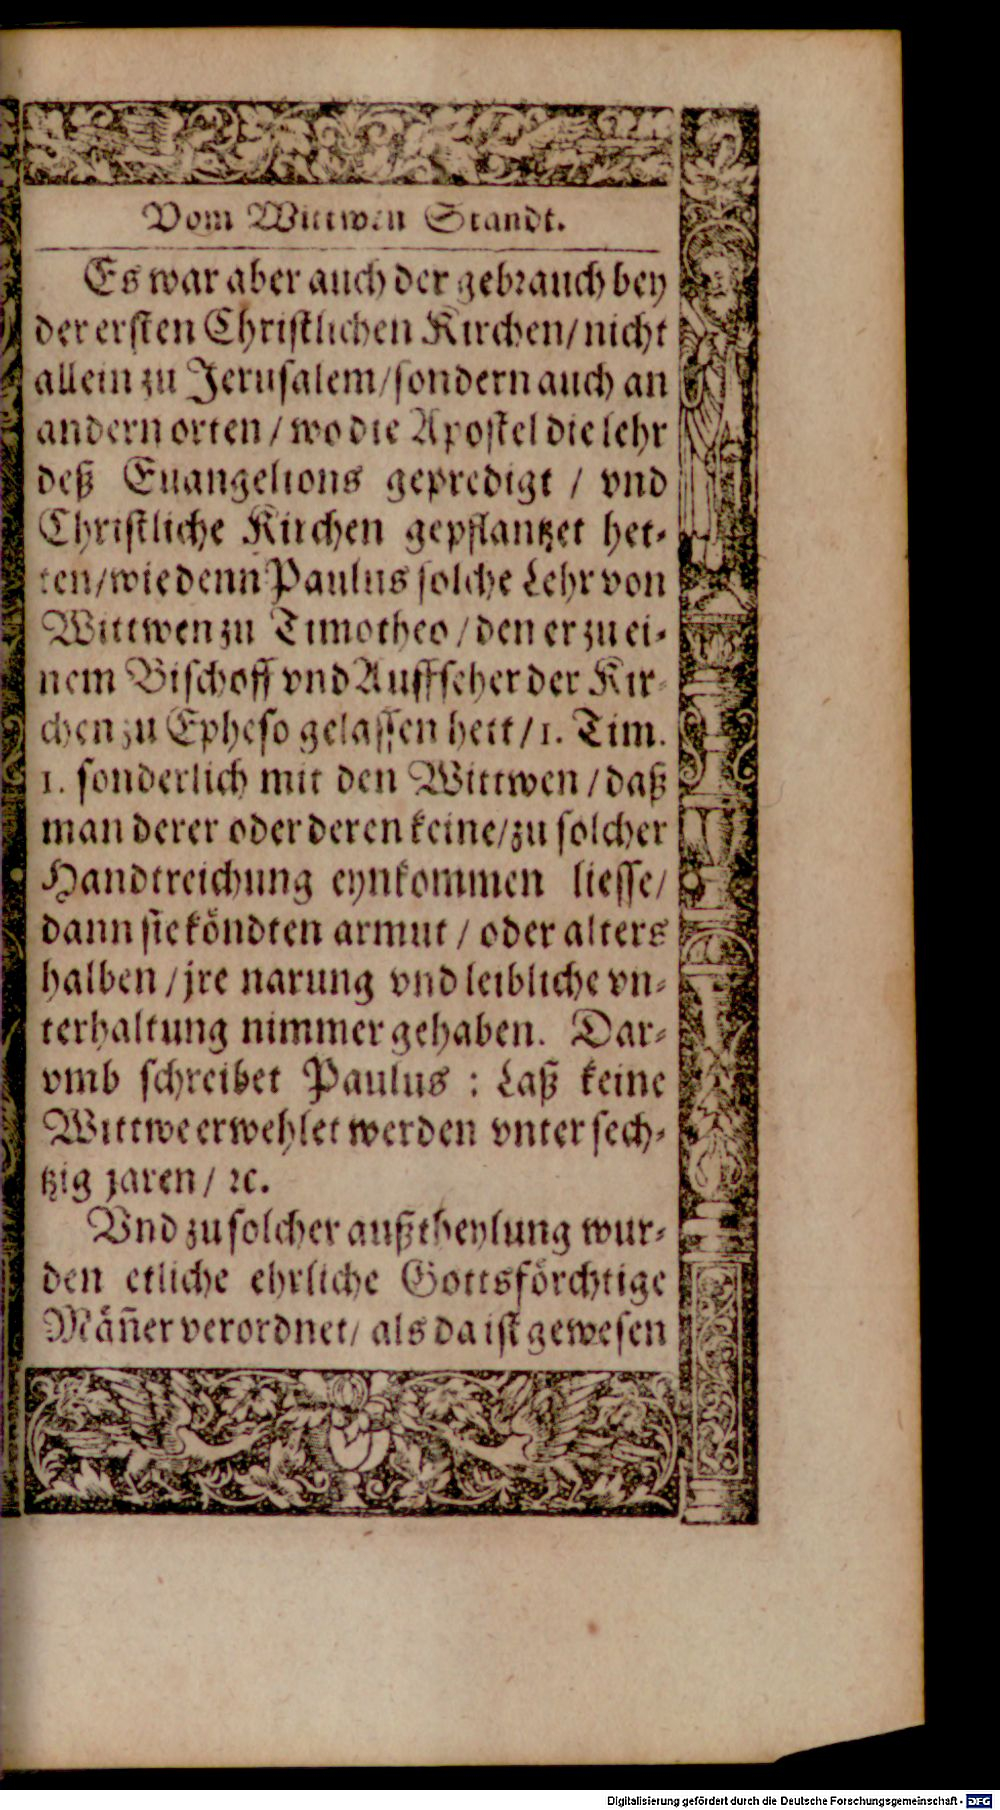 Vom Wittwen Standt.
Es war aber auch der gebrauch bey
der ersten Christlichen Kirchen/ nicht
allein zu Jerusalem/ sondern auch an
andern orten / wo die Apostel die lehr
deß Euangelions gepredigt / vnd
Christliche Kirchen gepflantzet het-
ten/ wie denn Paulus solche Lehr von
Wittwen zu Timotheo / den er zu ei-
nem Bischoff vnd Auffseher der Kir-
chen zu Epheso gelassen hett / 1. Tim.
1. sonderlich mit den Wittwen / daß
man derer oder deren keine/ zu solcher
Handtreichung eynkommen liesse/
dann sie köndten armut / oder alters
halben / jre narung vnd leibliche vn-
terhaltung nimmer gehaben. Dar-
vmb schreibet Paulus : Laß keine
Wittwe erwehlet werden vnter sech-
tzig jaren / ꝛc.
Vnd zu solcher außtheylung wur-
den etliche ehrliche Gottsförchtige
Mäñer verordnet/ als da ist gewesen
Digitalisierung gefördert durch die Deutsche Forschungsgemeinschaft - DFG